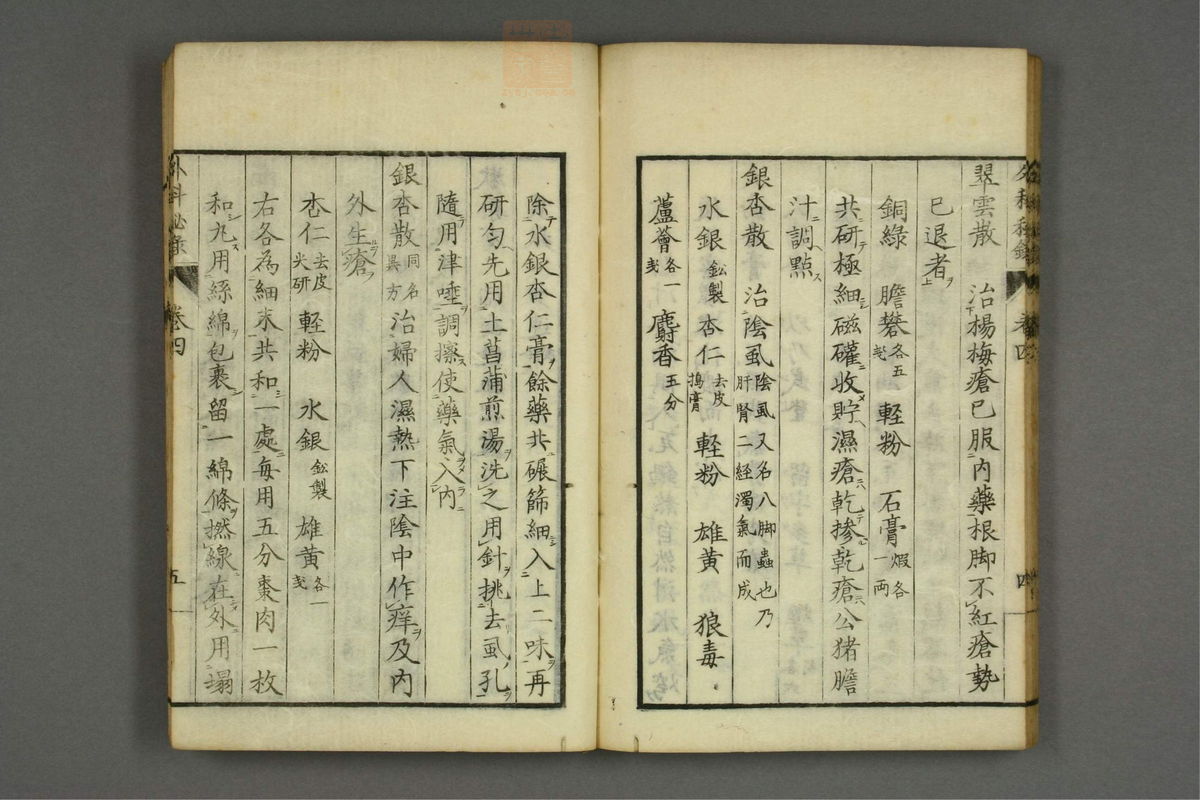 翠雲散　治楊梅瘡已服内藥根脚不紅瘡勢
已退者
銅綠　膽礬各五戔　輕粉　石膏煅各一両
共研極細磁礶收貯濕瘡乾摻乾瘡公猪膽
汁調點
銀杏散　治陰虱陰虱又名八脚蟲也乃肝腎二経濁氣而成
水銀鈆製　杏仁去皮搗膏　輕粉　雄黄　狼毒
蘆薈各一戔　麝香五分
除水銀杏仁膏餘藥共碾篩細入上二味再
研匀先用土菖蒲煎湯洗之用針挑去虱孔
隨用津唾調擦使藥氣入内
銀杏散同名異方　治婦人濕熱下注陰中作痒及内
外生瘡
杏仁去皮尖研　輕粉　水銀鈆製　雄黄各一戔
右各為細末共和一處毎用五分棗肉一枚
和丸用絲綿包裹留一綿條撚線在外用塌
卷四
五